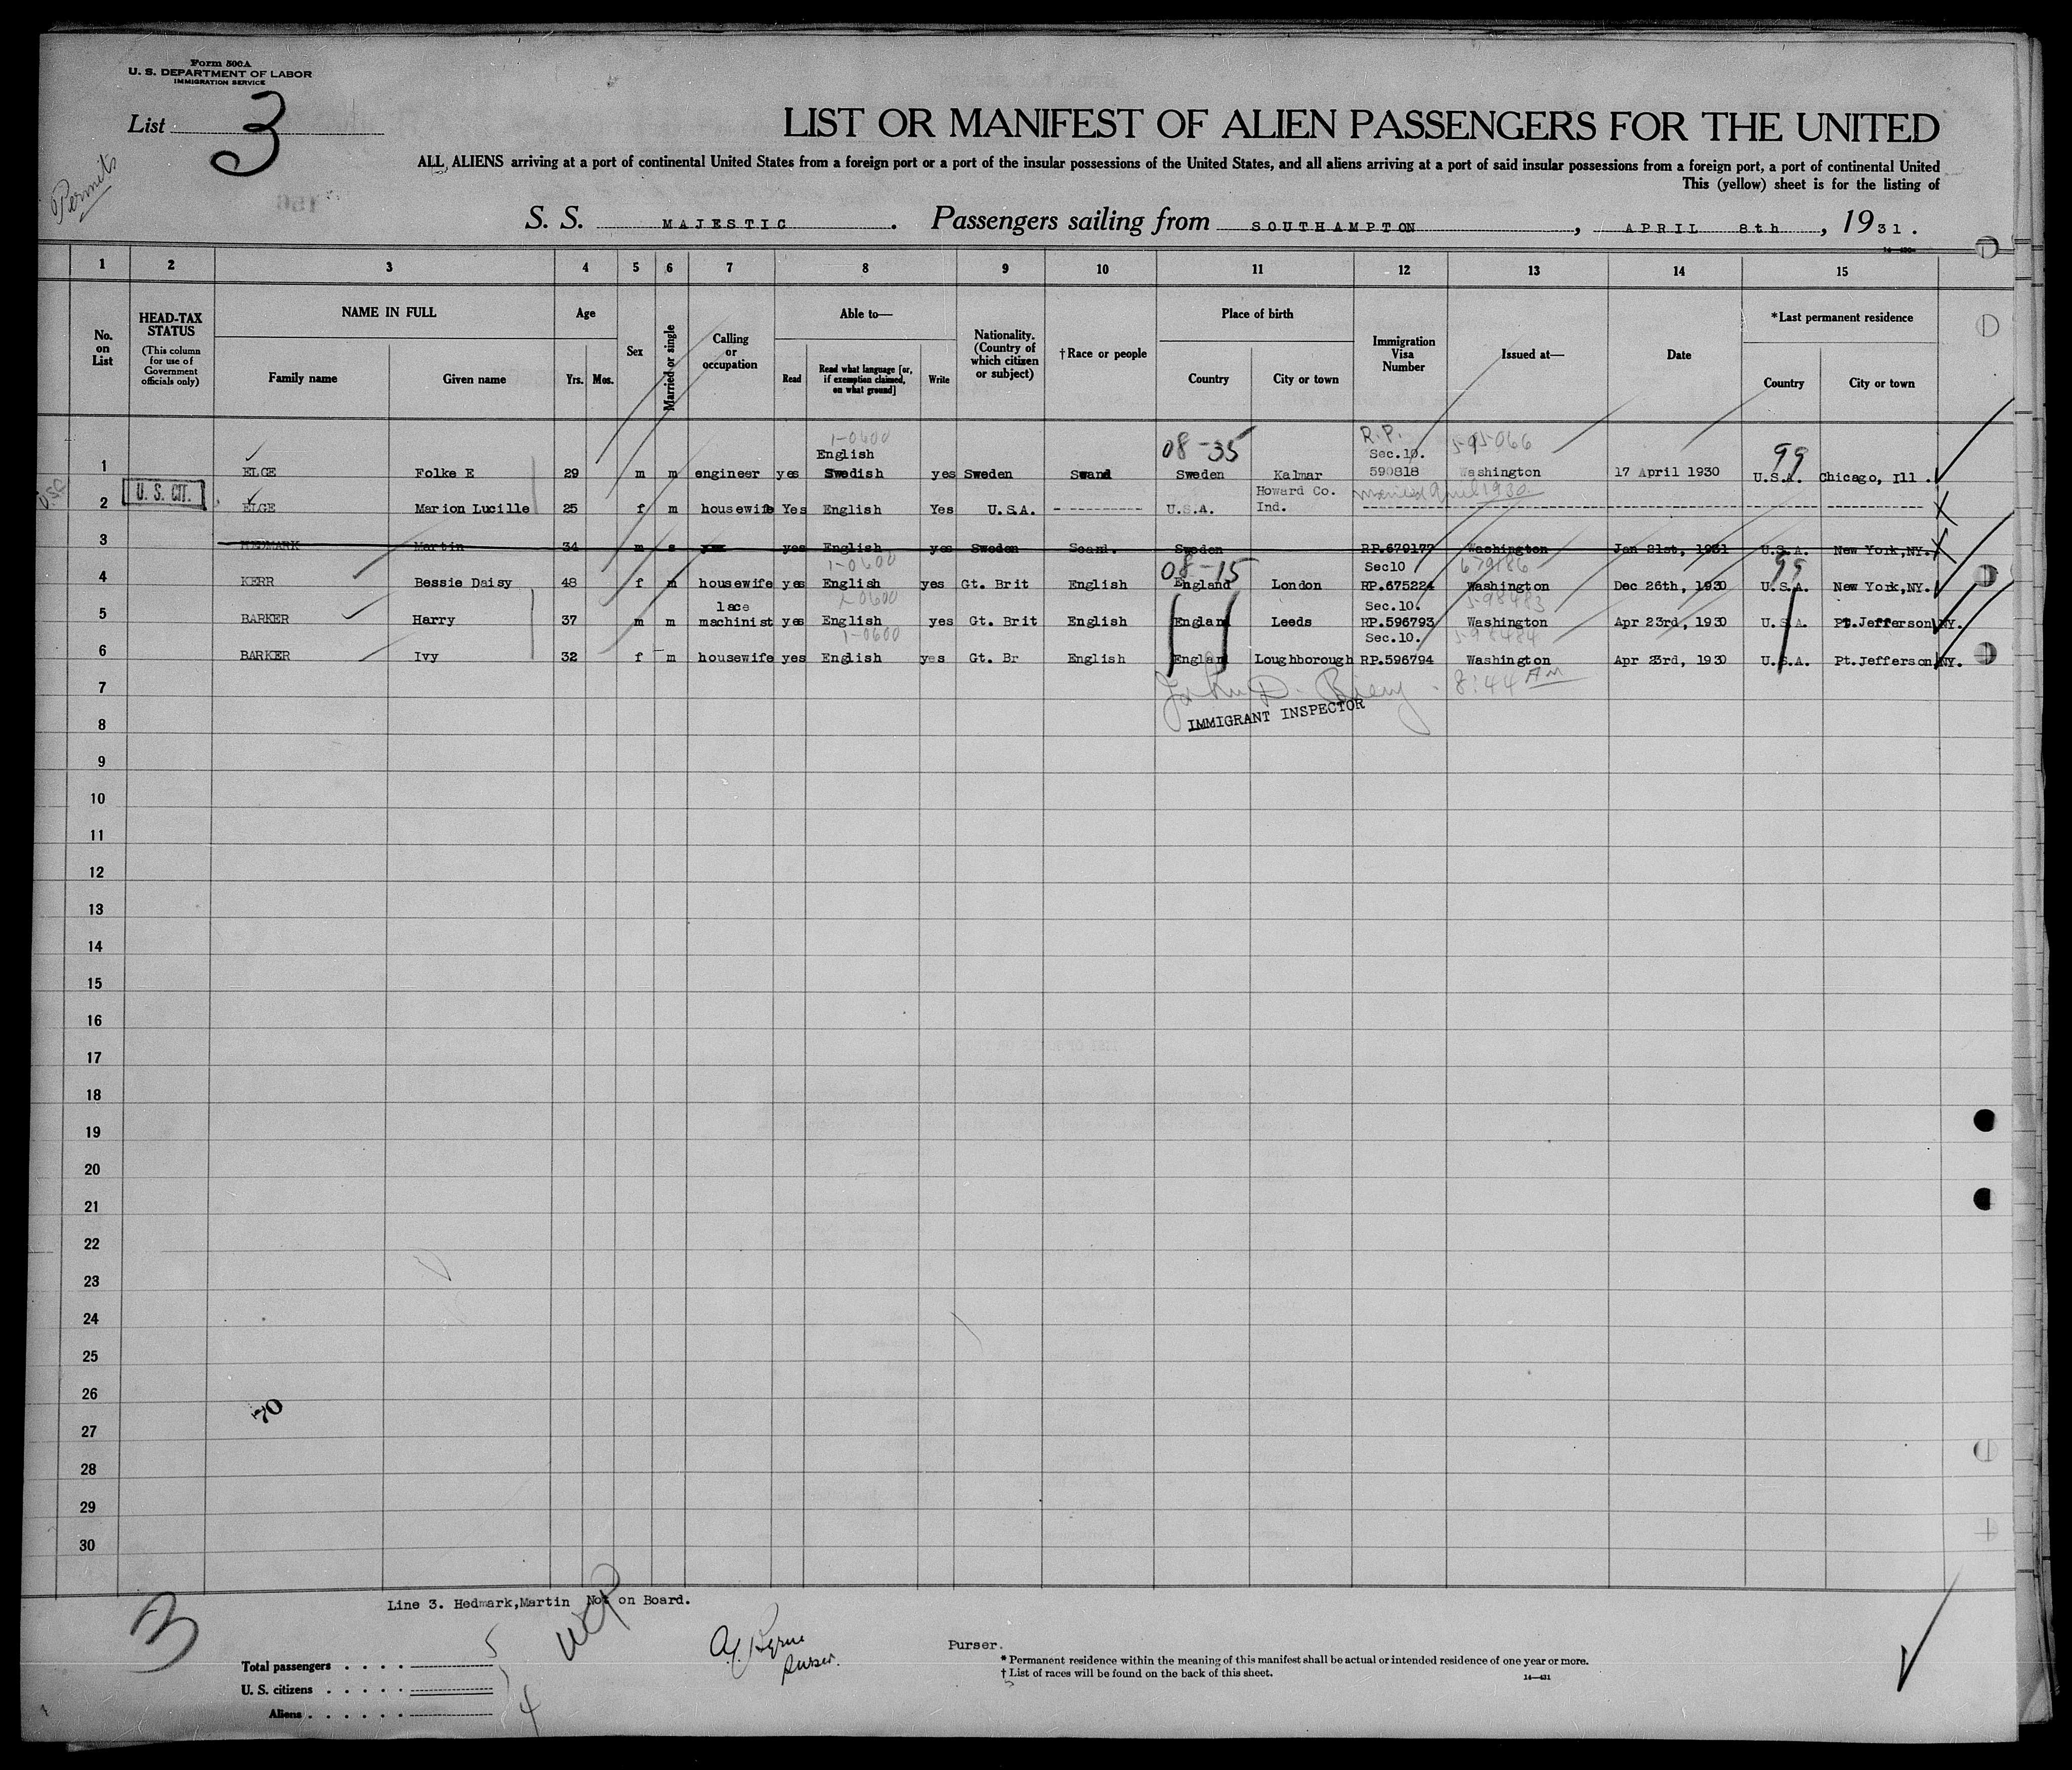 Form 500A
U. S. DEPARTMENT OF LABOR
IMMIGRATION SERVICE
List 3
Permits
LIST OR MANIFEST OF ALIEN PASSENGERS FOR THE UNITED
ALL ALIENS arriving at a port of continental United States from a foreign port or a port of the insular possessions of the United States, and all aliens arriving at a port of said insular possessions from a foreign port, a port of continental United
This (yellow) sheet is for the listing of
S. S. MAJESTIC. Passengers sailing from SOUTHAMPTON, APRIL 8th, 1931.
1 2 3 4 5 6 7 8 9 10 11 12 13 14 15
No. on List
HEAD-TAX STATUS (This column for use of Government officials only)
NAME IN FULL
Family name
Given name
Age
Yrs. Mos.
Sex
Married or single
Calling or occupation
Able to—
Read
Read what language [or, if exemption claimed, on what ground]
Write
Nationality. (Country of which citizen or subject)
†Race or people
Place of birth
Country
City or town
Immigration Visa Number
Issued at—
Date
*Last permanent residence
Country
City or town
1-0600 08-35 R.P. 99
English Sec.10.
1 ELGE Folke E 29 m m engineer yes Swedish yes Sweden Swand Sweden Kalmar 590818 Washington 17 April 1930 U.S.A. Chicago, Ill.
U. S. CIT. Howard Co. married April 1930
2 ELGE Marion Lucille 25 f m housewife Yes English Yes U.S.A. ---------- U.S.A. Ind.
3 HEDMARK Martin 34 m s yes English yes Sweden Scand. Sweden RP.679177 Washington Jan 21st, 1931 U.S.A. New York,NY.
1-0600 08-15 Sec10 679186 99
4 KERR Bessie Daisy 48 f m housewife yes English yes Gt. Brit English England London RP.675224 Washington Dec 26th, 1930 U.S.A. New York,NY.
lace Sec.10. 598483
5 BARKER Harry 37 m m machinist yes English yes Gt. Brit English England Leeds RP.596793 Washington Apr 23rd, 1930 U.S.A. Pt.Jefferson NY.
1-0600 Sec.10. 598484
6 BARKER Ivy 32 f m housewife yes English yes Gt. Br English England Loughborough RP.596794 Washington Apr 23rd, 1930 U.S.A. Pt.Jefferson NY.
7 John D. 8:44 AM
IMMIGRANT INSPECTOR
8
9
10
11
12
13
14
15
16
17
18
19
20
21
22
23
24
25
26
70
27
28
29
30
Line 3. Hedmark,Martin Not on Board.
3
Total passengers . . . . 5
U. S. citizens . . . . .
Aliens . . . . . . 4
Purser.
Purser.
* Permanent residence within the meaning of this manifest shall be actual or intended residence of one year or more.
† List of races will be found on the back of this sheet.
14—431